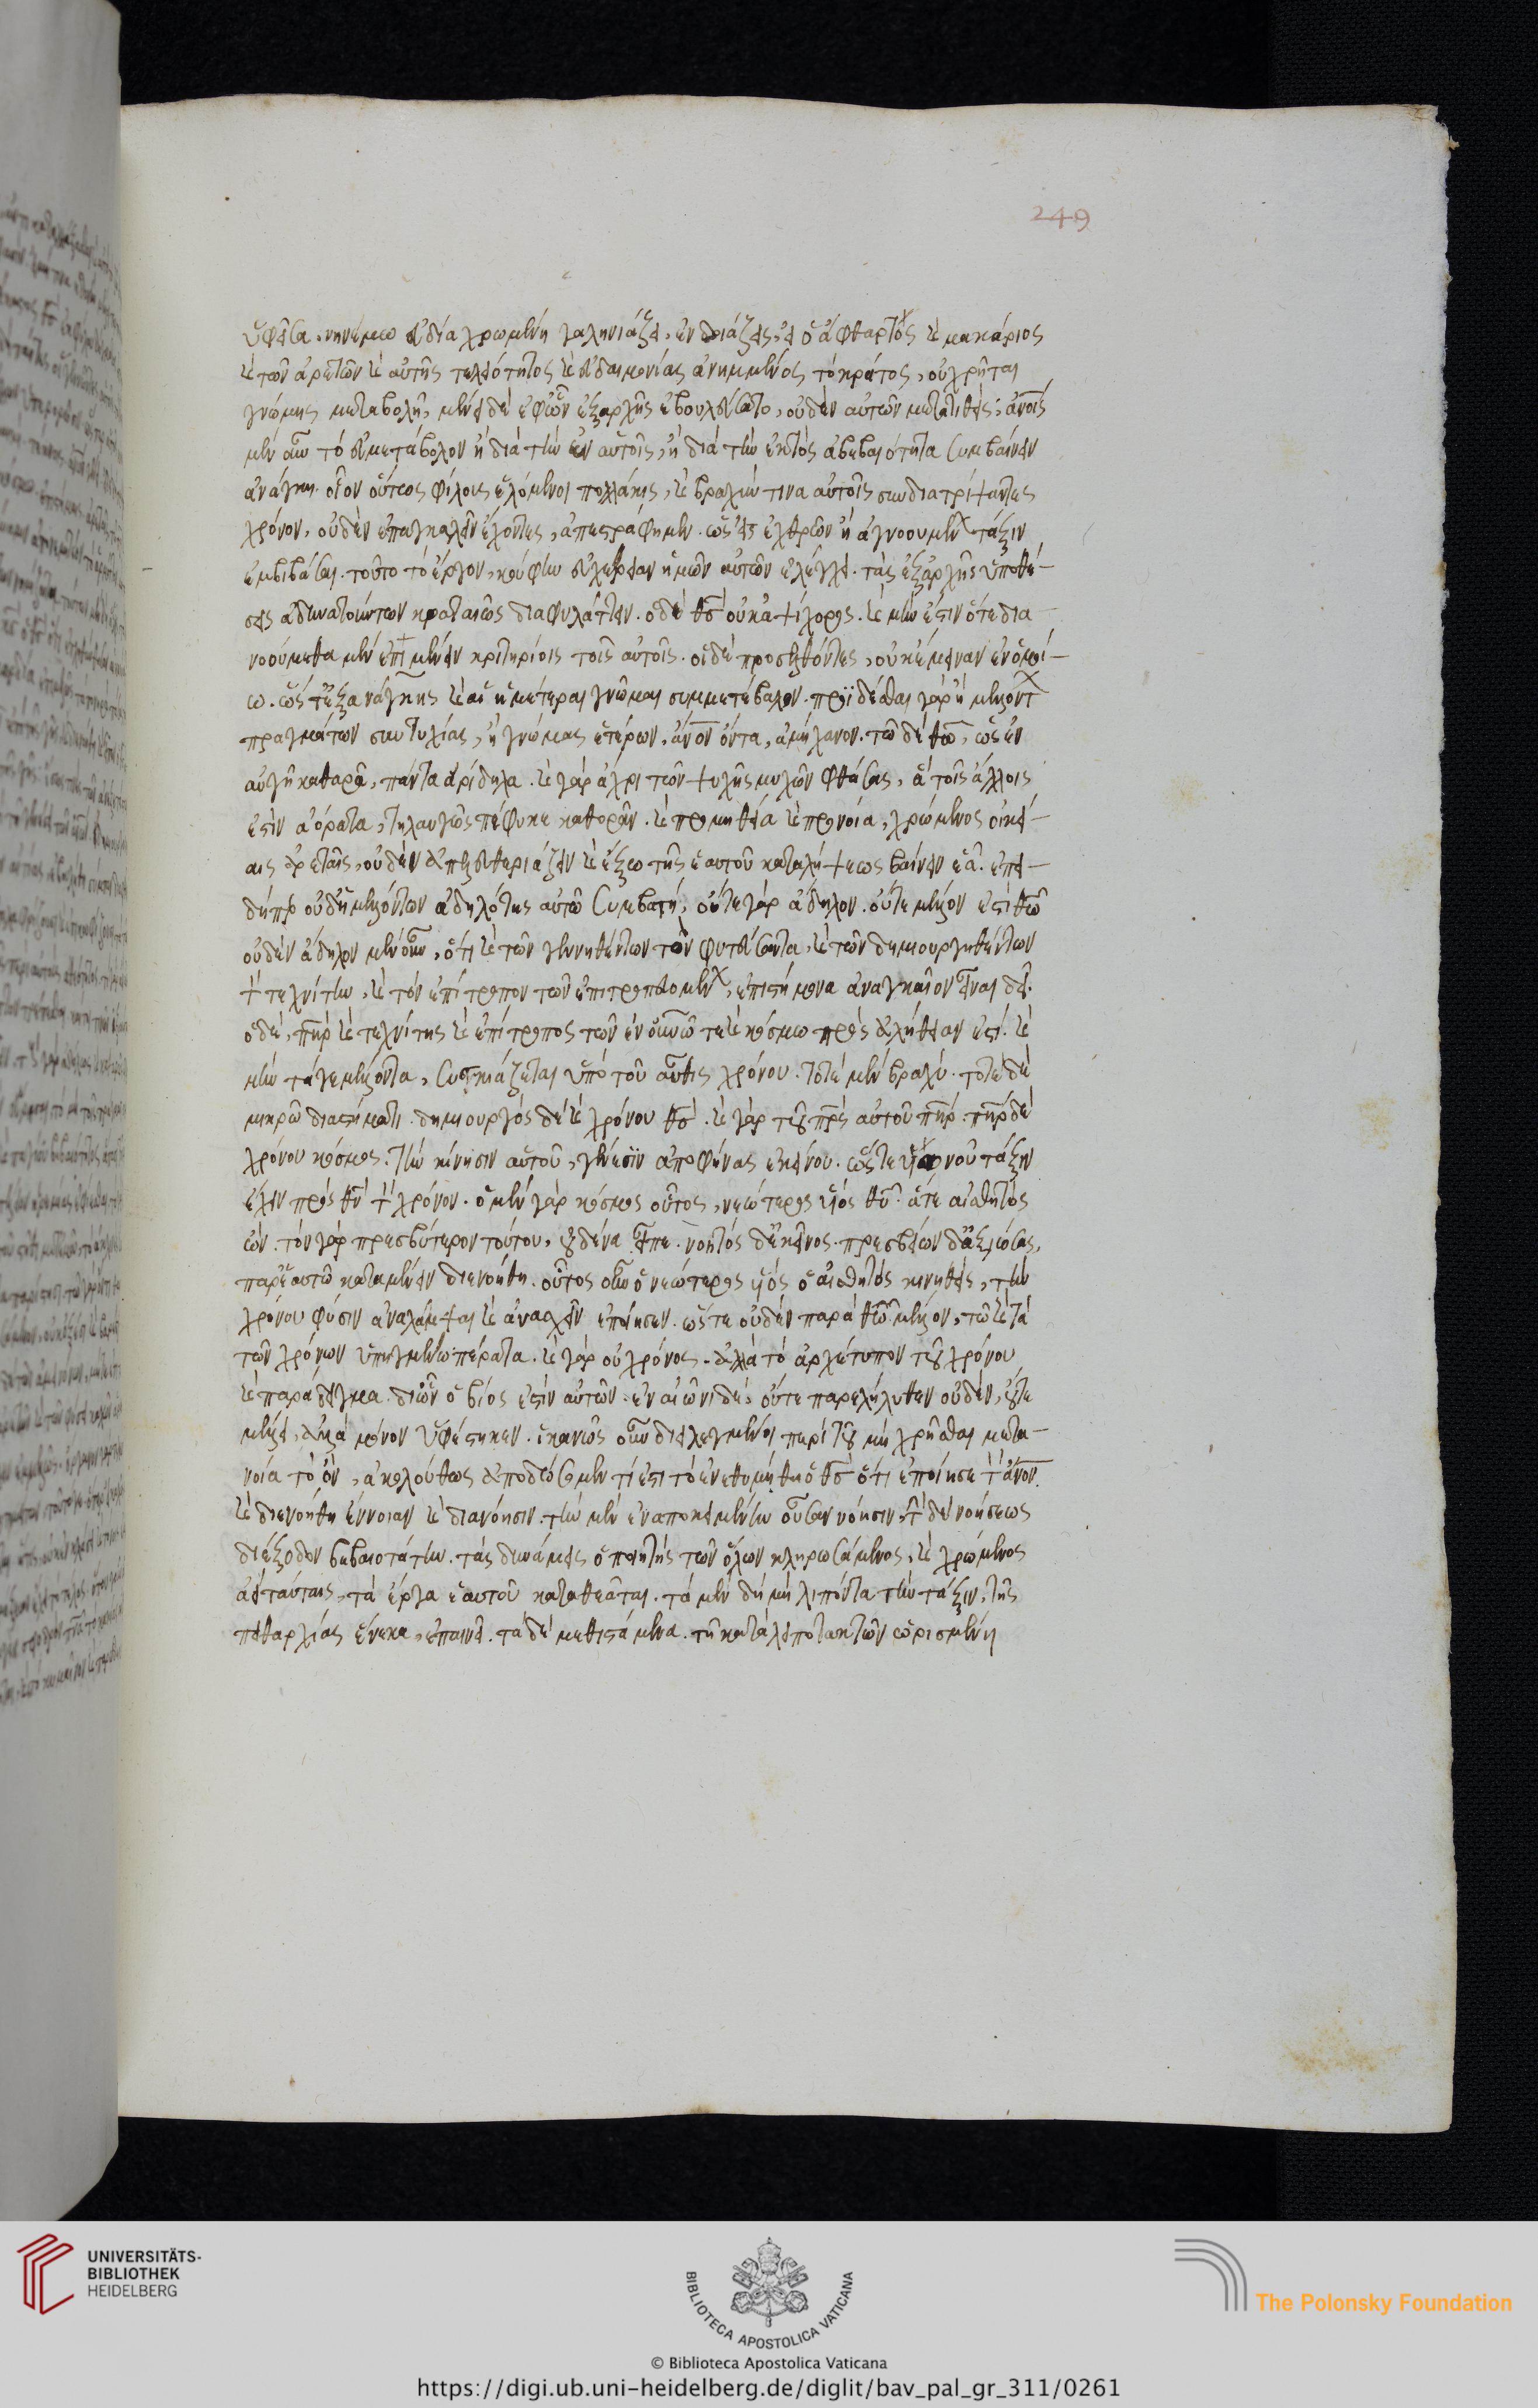 249
ὑφεῖσα, νηνέμω εὐδία χρωμένη γαληνιάζει, ἐνδοιάζεις, εἰ ὁ ἄφθαρτος καὶ μακάριος
καὶ τῶν ἀρετῶν καὶ αὐτῆς τελειότητος καὶ εὐδαιμονίας ἀνημμένος τὸ κράτος, οὐ χρῆται
γνώμης μεταβολῆ, μένει δὲ ἐφ' ὧν ἐξαρχῆς ἐβουλεύσατο, οὐδὲν αὐτῶν μετατιθείς; ἀνοις
μὲν οὖν τὸ εὐμετάβολον ἢ διὰ τὴν ἐν αὐτοῖς, ἢ διὰ τὴν ἐκτὸς ἀβεβαιότητα συμβαίνειν
ἀνάγκη. οἷον οὕτως φίλους ἑλόμενοι πολλάκις, καὶ βραχύν τινα αὐτοῖς συνδιατρίψαντες
χρόνον, οὐδὲν ἐπαγκαλεῖν ἔχοντες, ἀπεστράφημεν. ὡς εἰς ἐχθρῶν ἢ ἀγνοουμένων τάξιν
ἐμβιβάσαι. τοῦτο τὸ ἔργον, κούφην εὐχέρειαν ἡμῶν αὐτῶν ἐλέγχει. τὰς ἐξαρχῆς ὑποθέ-
σεις ἀδυνατούντων κραταιῶς διαφυλάττειν. ὁ δὲ θς οὐκ ἀψίκορος. καὶ μὴν ἔστιν ὅτε δια-
νοούμεθα μὲν ἐπιμένειν κριτηρίοις τοῖς αὐτοῖς. οἱ δὲ προσελθόντες, οὐκ ἔμειναν ἐν ὁμοί-
ω. ὥστ' ἐξ ἀνάγκης καὶ αἱ ἡμέτεραι γνῶμαι συμμετέβαλον. προϊδέσθαι γὰρ ἢ μελλόντων
πραγμάτων συντυχίας, ἢ γνώμας ἑτέρων, ἀνον ὄντα, ἀμήχανον. τῶ δὲ θω, ὡς ἐν
αὐγῆ καθαρᾶ, πάντα ἀρίδηλα. καὶ γὰρ ἄχρι τῶν ψυχῆς μυχῶν φθάσας, ἃ τοῖς ἄλλοις
ἐστὶν ἀόρατα, τηλαυγῶς πέφυκε καθορᾶν. καὶ προμηθεία καὶ προνοία, χρώμενος οἰκεί-
αις ἀρεταῖς, οὐδὲν ἀπελευθεριάζειν καὶ ἔξω τῆς ἑαυτοῦ καταλήψεως βαίνειν ἐᾶ. ἐπει-
δήπερ οὐδ' ἡ μελλόντων ἀδηλότης αὐτῶ συμβατή, οὔτε γὰρ ἄδηλον. οὔτε μέλλον ἐστὶ θω
οὐδὲν ἄδηλον μὲν οὖν, ὅτι καὶ τῶν γεννηθέντων τὸν φυτεύσαντα, καὶ τῶν δημιουργηθέντων
τὸν τεχνίτην, καὶ τὸν ἐπίτροπον τῶν ἐπιτροπευομένων, ἐπιστήμονα ἀναγκαῖον εἶναι δεῖ.
ὁ δὲ, πηρ καὶ τεχνίτης καὶ ἐπίτροπος τῶν ἐν οὐνω τε καὶ κόσμω πρὸς ἀλήθειαν ἐστί. καὶ
μὴν τά γε μέλλοντα, συσκιάζεται ὑπὸ τοῦ αὖθις χρόνου. τοτὲ μὲν βραχύ. τοτὲ δὲ
μικρῶ διαστήματι. δημιουργὸς δὲ καὶ χρόνου θς. καὶ γὰρ τοῦ πρς αὐτοῦ πηρ. πηρ δὲ
χρόνου κόσμος. τὴν κίνησιν αὐτοῦ, γένεσιν ἀποφήνας ἐκείνου. ὥστε υἱωνοῦ τάξιν
ἔχειν πρὸς θν τὸν χρόνον. ὁ μὲν γὰρ κόσμος οὗτος, νεώτερος υἱὸς θυ. ἅτε αἰσθητὸς
ὤν. τὸν γὰρ πρεσβύτερον τούτου, οὐδένα εἶπε. νοητὸς δ' ἐκεῖνος. πρεσβείων δ' ἀξιώσας,
παρ' ἑαυτῶ καταμένειν διενοήθη. οὗτος οὖν ὁ νεώτερος υἱὸς ὁ αἰσθητὸς κινηθείς, τὴν
χρόνου φύσιν ἀναλάμψαι καὶ ἀνασχεῖν ἐποίησεν. ὥστε οὐδὲν παρὰ θω μέλλον, τῶ καὶ τὰ
τῶν χρόνων ὑπηγμένω πέρατα. καὶ γὰρ οὐ χρόνος. ἀλλὰ τὸ ἀρχέτυπον τοῦ χρόνου
καὶ παράδειγμα. δι' ὧν ὁ βίος ἐστὶν αὐτῶν. ἐν αἰῶνι δὲ, οὔτε παρελήλυθεν οὐδὲν, οὔτε
μέλλει, ἀλλὰ μόνον ὑφέστηκεν. ἱκανῶς οὖν διειλεγμένοι περὶ τοῦ μὴ χρῆσθαι μετα-
νοία τὸ ὂν, ἀκολούθως ἀποδώσομεν τί ἐστι τὸ ἐνεθυμήθη ὁ θς ὅτι ἐποίησε τὸν ἀνον.
καὶ διενοήθη ἔννοιαν καὶ διανόησιν. τὴν μὲν ἐναποκειμένην οὖσαν νόησιν, τὴν δὲ νοήσεως
διέξοδον βεβαιοτάτην. τὰς δυνάμεις ὁ ποιητὴς τῶν ὅλων κληρωσάμενος, καὶ χρώμενος
ἀεὶ ταύταις, τὰ ἔργα ἑαυτοῦ καταθεᾶται. τὰ μὲν δὴ μὴ λιπόντα τὴν τάξιν, τῆς
πειθαρχίας ἕνεκα, ἐπαινεῖ. τὰ δὲ μεθιστάμενα. τῆ κατὰ λειποτακτῶν ὡρισμένη
UNIVERSITÄTS-
BIBLIOTHEK
HEIDELBERG
BIBLIOTECA APOSTOLICA VATICANA
The Polonsky Foundation
© Biblioteca Apostolica Vaticana
https://digi.ub.uni-heidelberg.de/diglit/bav_pal_gr_311/0261